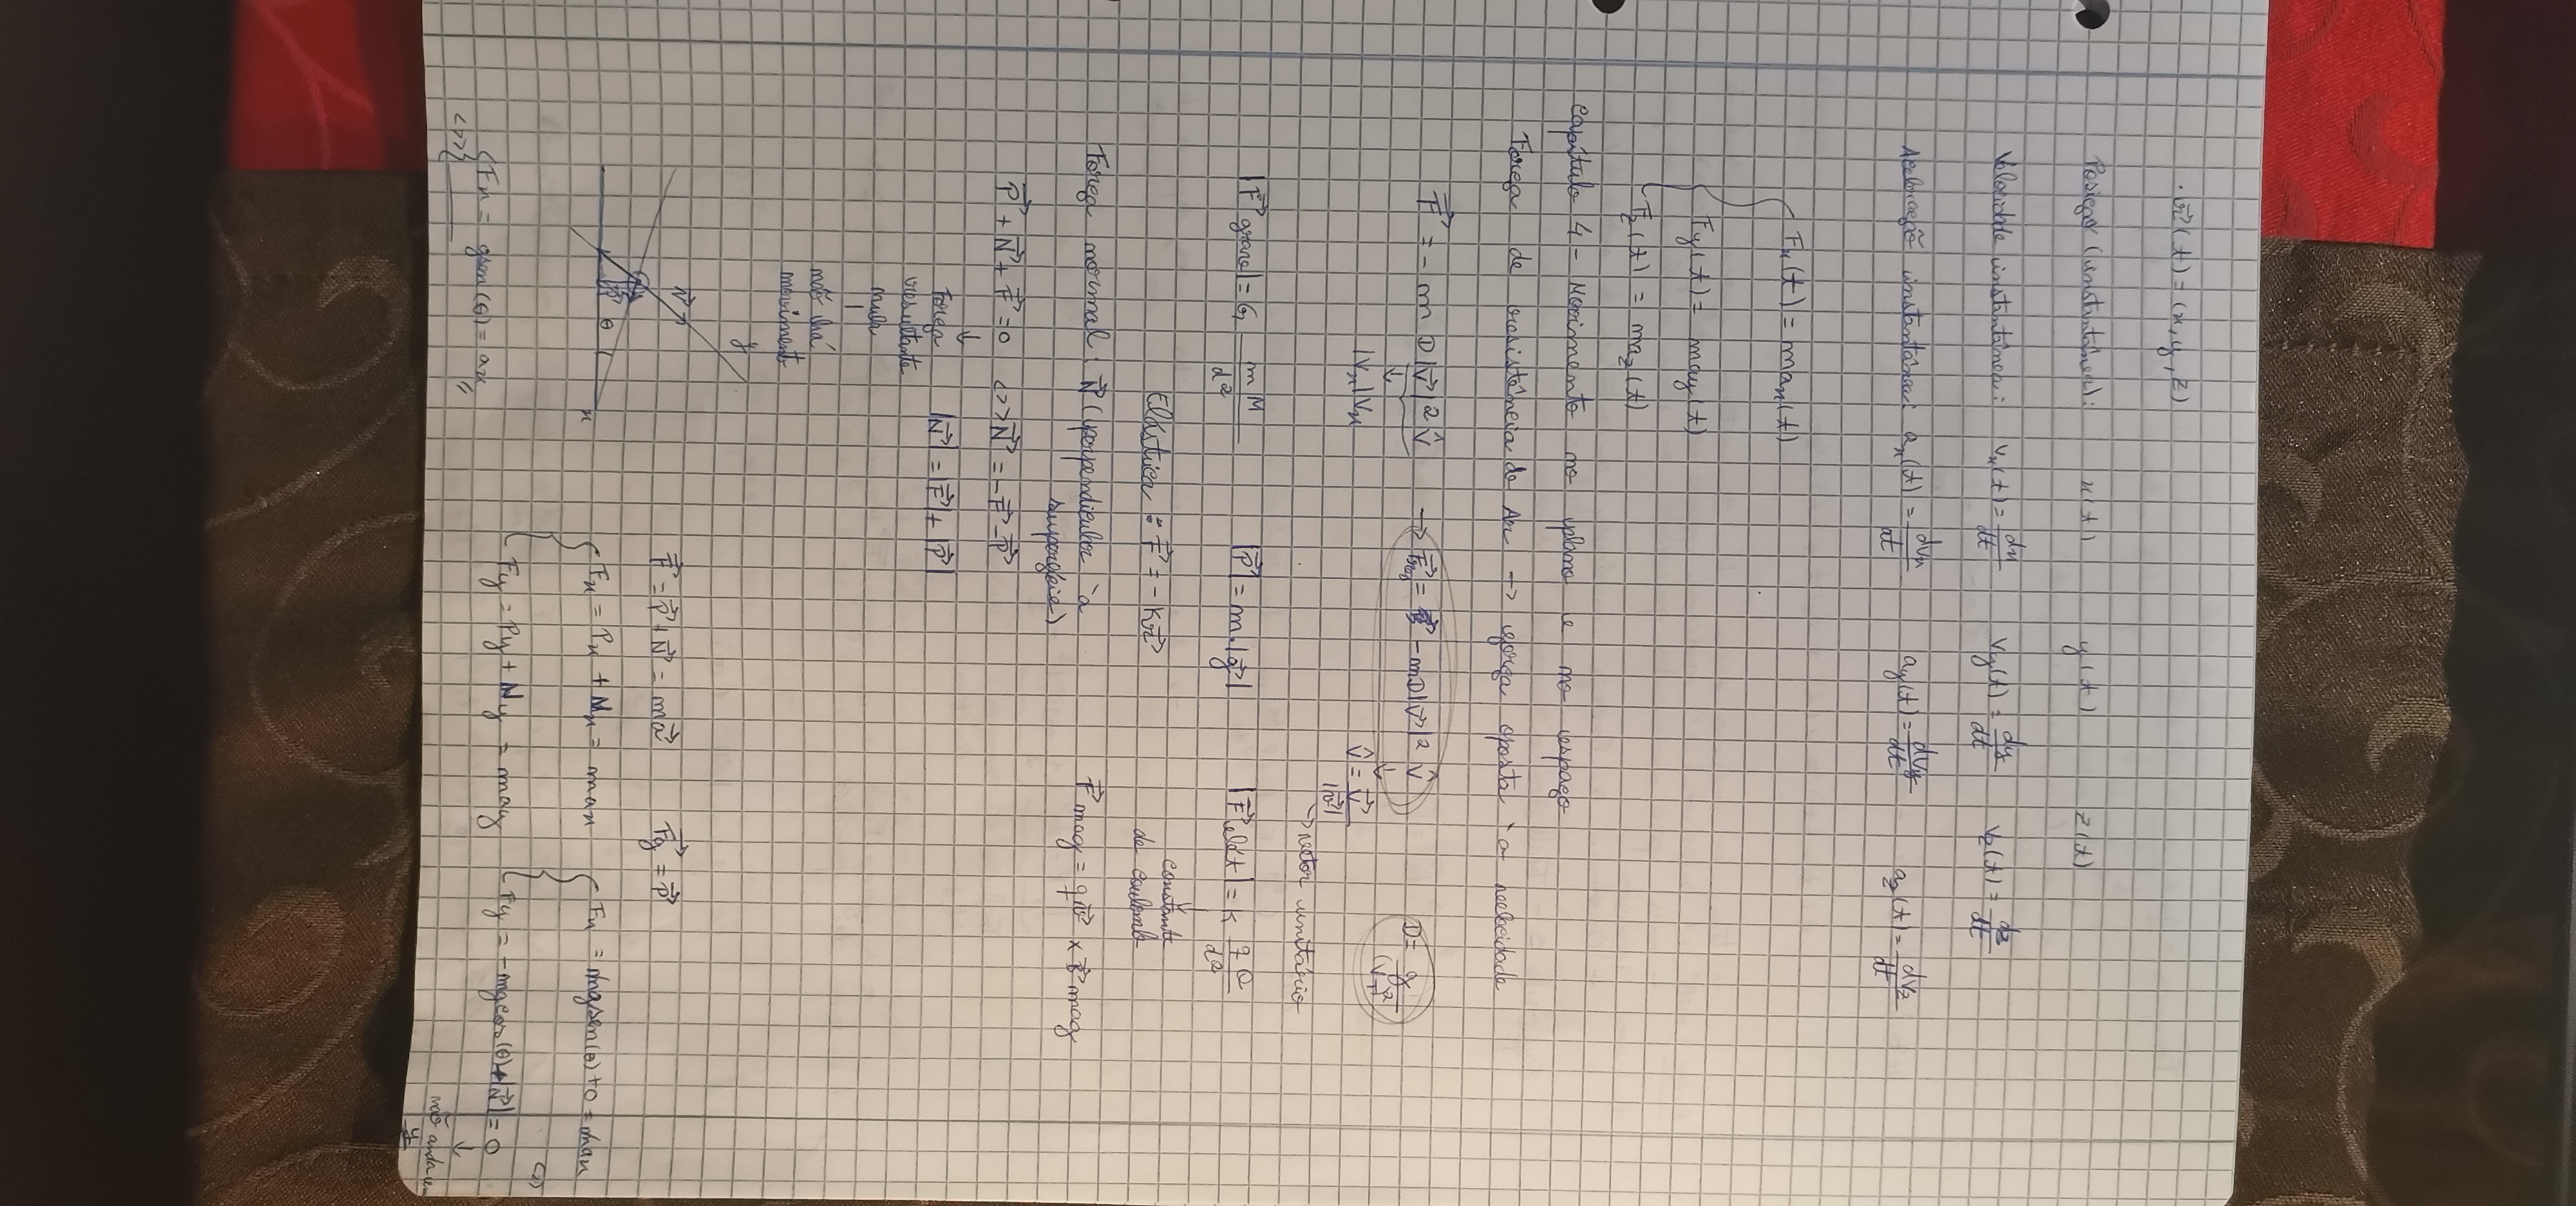 . r⃗(t) = (x, y, z)
Posição (instantânea): x(t) y(t) z(t)
Velocidade instantânea: Vx(t) = dx/dt Vy(t) = dy/dt Vz(t) = dz/dt
Aceleração instantânea: ax(t) = dVx/dt ay(t) = dVy/dt az(t) = dVz/dt
{ Fx(t) = max(t)
Fy(t) = may(t)
Fz(t) = maz(t)
Capítulo 4 - Movimento no plano e no espaço
Força de resistência do Ar → força oposta à velocidade
F⃗ = - m D |V⃗|² V̂ → F⃗drag = - mD|V⃗|² V̂ D = g/(VT)²
↓ |Vx|Vx ↓ V̂ = V⃗/|v⃗|
→ vetor unitário
|F⃗ grav| = G mM/d² |P⃗| = m.|g⃗| |F⃗ elét| = K qQ/d²
constante
de coulomb
Elástica: F⃗ = - Kr⃗
Força normal: N⃗ (perpendicular à F⃗ mag = qv⃗ × B⃗ mag
superfície)
P⃗ + N⃗ + F⃗ = 0 <=> N⃗ = - F⃗ - P⃗
↓
Força |N⃗| = |F⃗| + |P⃗|
resultante
nula
não há
movimento
y
N⃗
θ
x
F⃗ = P⃗ + N⃗ = ma⃗ F⃗g = P⃗
{ Fx = Px + Nx = max { Fx = mgsen(θ) + 0 = max
Fy = Py + Ny = may Fy = -mgcos(θ) + |N⃗| = 0 <=>
↓
não anda em
y
<=> { Fx = gsen(θ) = ax //